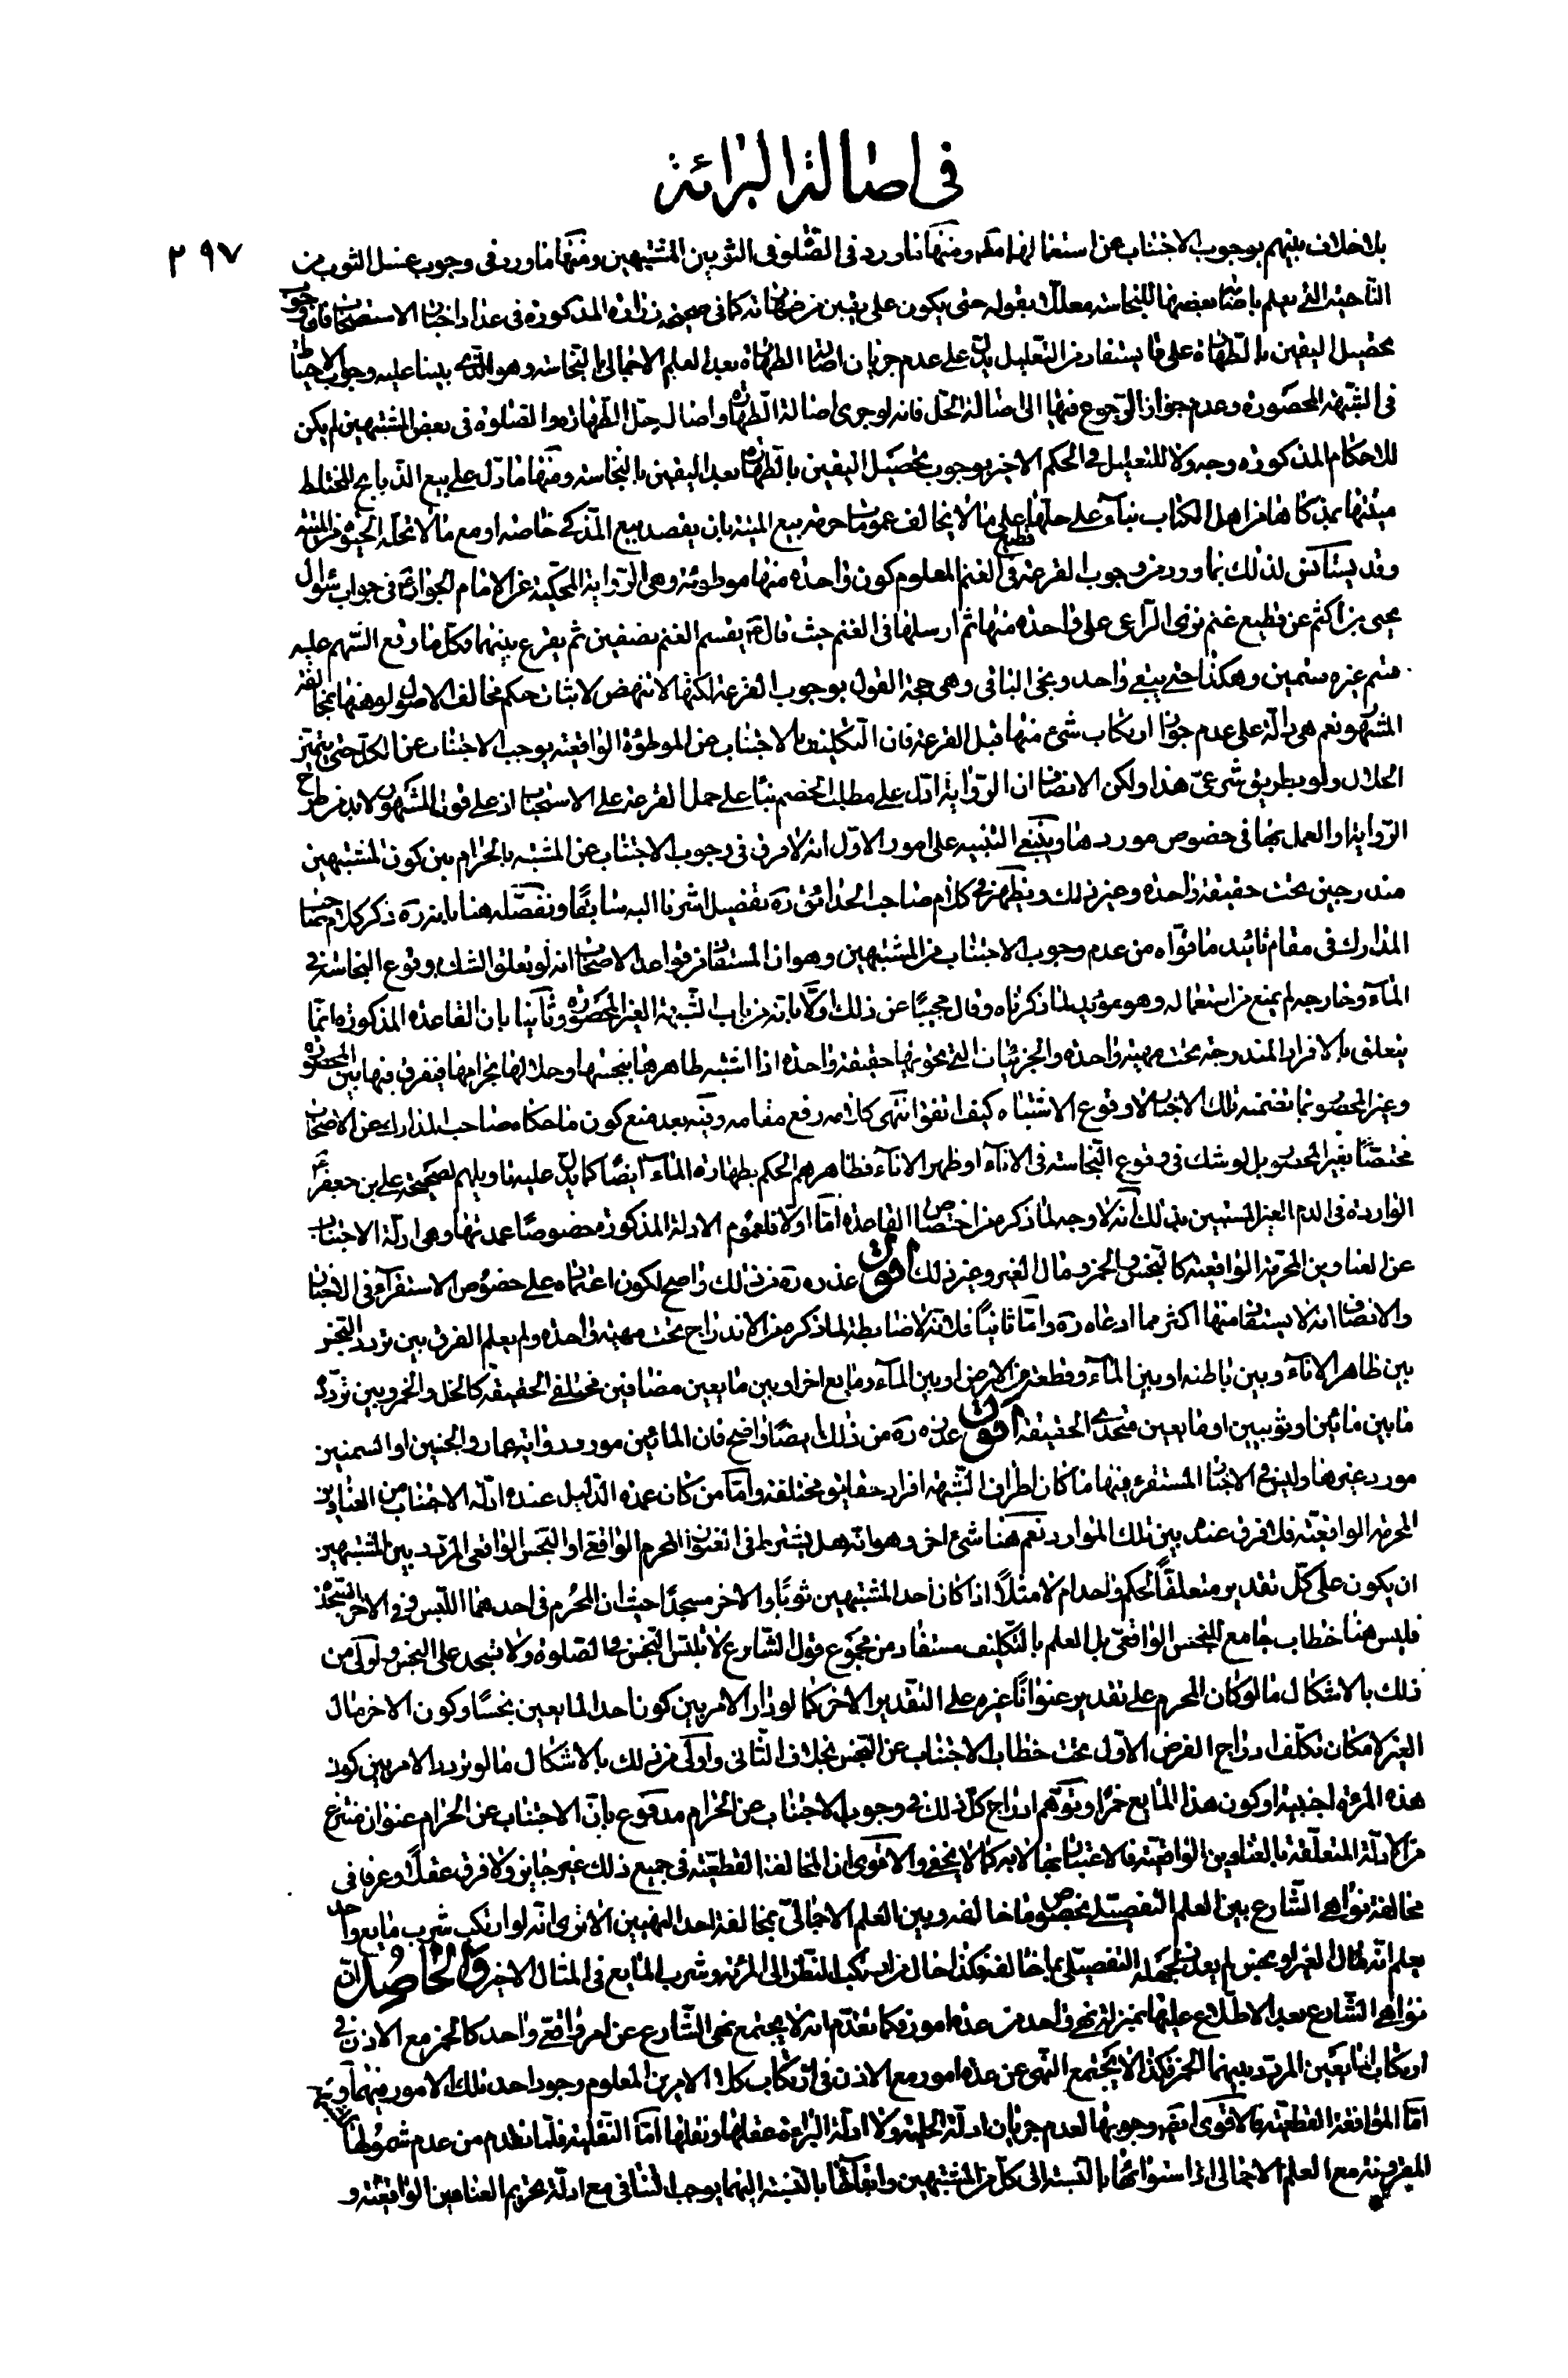 في اصالة البرائة
٢٩٧
بلا خلاف بينهم بوجوب الاجتناب عن استعمالهما مطلقا ومنها ما ورد في الصّلوة في الثوبين المشتبهين ومنها ما ورد في وجوب غسل الثوب من
النّاحية التي يعلم باصابة بعضها للنجاسة معلّلا بقوله حتى يكون على يقين من طهارته كما في صحيحة زرارة المذكورة في عداد اخبار الاستصحاب فان وجوب
تحصيل اليقين بالطهارة على ما يستفاد من التعليل يدل على عدم جريان اصالة الطهارة بعد العلم الاجمالي بالنجاسة وهو الذي بنينا عليه وجوب الاحتياط
في الشبهة المحصورة وعدم جواز الرّجوع فيها الى اصالة الحل فانه لو جرى اصالة الطهارة واصالة حل الطهارة والصلوة في بعض المشتبهين لم يكن
للاحكام المذكورة وجه ولا للتعليل في الحكم الاخير بوجوب تحصيل اليقين بالطهارة بعد اليقين بالنجاسة ومنها ما دل على بيع الذبايح المختلط
ميتتها بمذكاها من اهل الكتاب بناء على حملها على ما لا يخالف عمومات حرمة بيع الميتة بان يقصد بيع المذكى خاصة او مع ما لا تحله الحيوة من الميتة
وقد يستأنس لذلك بما ورد من وجوب القرعة في قطيع الغنم المعلوم كون واحدة منها موطوئة وهي الرّواية المحكية عن الامام الجواد ع في جواب سؤال
يحيى بن اكثم عن قطيع غنم نزى الرّاعي على واحدة منها ثم ارسلها في الغنم حيث قال ع يقسم الغنم نصفين ثم يقرع بينهما فكل ما وقع السّهم عليه
قسم غيره قسمين وهكذا حتى يبقى واحد ونجى الباقي وهي حجة القول بوجوب القرعة لكنها لا تنهض لاثبات حكم مخالف للاصول لوهنها بمخالفة
المشهور نعم هي دالة على عدم جواز ارتكاب شيء منها قبل القرعة فان التكليف بالاجتناب عن الموطوئة الواقعية يوجب الاجتناب عن الكل حتى يتميّز
الحلال ولو بطريق شرعيّ هذا ولكن الانصاف ان الرّواية ادل على مطلب الخصم بناء على حمل القرعة على الاستحباب اذ على قول المشهور لا بد من طرح
الرّواية او العمل بها في خصوص موردها وينبغي التنبيه على امور الاوّل انه لا فرق في وجوب الاجتناب عن المشتبه بالحرام بين كون المشتبهين
مندرجين تحت حقيقة واحدة وغير ذلك ويظهر من كلام صاحب الحدائق ره تفصيل اشرنا اليه سابقا ونفصّله هنا بانه ره ذكر كلام صاحب
المدارك في مقام تأييد ما قوّاه من عدم وجوب الاجتناب من المشتبهين وهو ان المستفاد من قواعد الاصحاب انه لو تعلق الشك بوقوع النجاسة في
المآء وخارجه لم يمنع من استعماله وهو مؤيد لما ذكرناه وقال مجيبا عن ذلك اولا بانه من باب الشبهة الغير المحصورة وثانيا بان القاعدة المذكورة انما
يتعلق بالافراد المندرجة تحت مهية واحدة والجزئيات التي تحويها حقيقة واحدة اذا اشتبه طاهرها بنجسها وحلالها بحرامها فيفرق فيها بين المحصورة
وغير المحصور بما تضمنه تلك الاخبار لا وقوع الاشتباه كيف اتفق انتهى كلامه رفع مقامه وفيه بعد منع كون ما حكاه صاحب المدارك عن الاصحاب
مختصا بغير المحصور بل لو شك في وقوع النجاسة في الاناء او ظهر الاناء فظاهرهم الحكم بطهارة المآء ايضا كما يدل عليه تاويلهم لصحيحة علي بن جعفر ع
الواردة في الدم الغير المستبين بذلك انه لا وجه لما ذكره من اختصاص القاعدة امّا اولا فلعموم الادلة المذكورة خصوصا عمدتها وهي ادلة الاجتناب
عن العناوين المحرمة الواقعية كالنجس والخمر ومال الغير وغير ذلك اقول عذره ره من ذلك واضح لكون اعتماده على خصوص الاستقرآء في الاخبار
والانصاف انه لا يستفاد منها اكثر مما ادعاه ره وامّا ثانيا فلانه لا ضابطة لما ذكره من الاندراج تحت مهية واحدة ولم يعلم الفرق بين تردد النجس
بين ظاهر الاناء وبين باطنه او بين المآء وقطعة من الارض او بين المآء ومايع اخر او بين مايعين مضافين مختلفي الحقيقة كالخل والخمر وبين تردّده
ما بين مائين او ثوبين او مايعين متحدي الحقيقة اقول عذره ره من ذلك ايضا واضح فان المائين مورد رواية عمار والجنبين او القسمين
مورد غيرها وليس في الاخبار المستقرئ فيها ما كان اطراف الشبهة افراد حقايق مختلفة وامّا من كان عمدة الدّليل عنده ادلة الاجتناب من العناوين
المحرمة الواقعية فلا فرق عنده بين تلك الموارد نعم هنا شيء اخر وهو انه هل يشترط في العنوان المحرم الواقعي او النجس الواقعي المردد بين المشتبهين
ان يكون على كل تقدير متعلقا لحكم واحد ام لا مثلا اذا كان احد المشتبهين ثوبا والاخر مسجدا حيث ان المحرم في احدهما اللبس وفي الاخر السّجدة
فليس هنا خطاب جامع للنجس الواقعي بل العلم بالتكليف مستفاد من مجموع قول الشارع لا تلبس النجس في الصلوة ولا تسجد على النجس واولى من
ذلك بالاشكال ما لو كان المحرم على تقدير عنوانا غيره على التقدير الاخر كما لو دار الامر بين كون احد المايعين نجسا وكون الاخر مال
الغير لامكان تكلف ادراج الفرض الاول تحت خطاب الاجتناب عن النجس بخلاف الثاني واولى من ذلك بالاشكال ما لو تردد الامر بين كون
هذه المرئة اجنبية او كون هذا المايع خمرا وتوهم ادراج كل ذلك في وجوب الاجتناب عن الحرام مدفوع بان الاجتناب عن الحرام عنوان منتزع
من الادلة المتعلقة بالعناوين الواقعية فالاعتبار بها لا به كما لا يخفى والاقوى ان المخالفة القطعية في جميع ذلك غير جايز ولا فرق عقلا وعرفا في
مخالفة نواهي الشارع بين العلم التفصيلي بخصوص ما خالفه وبين العلم الاجمالي بمخالفة احد النهيين الا ترى انه لو ارتكب شرب مايع واحد
يعلم انه مال الغير او نجس لم يعذر لجهله التفصيلي بما خالفه فكذا حال من ارتكب النظر الى المرئة وشرب المايع في المثال الاخير والحاصل ان
نواهي الشارع بعد الاطلاع عليها بمنزلة نهي واحد من عدة امور فكما تقدّم انه لا يجتمع نهي الشارع عن امر واقعي واحد كالخمر مع الاذن في
ارتكاب المايعين المردد بينهما الخمر فكذا لا يجتمع النهي عن عدة امور مع الاذن في ارتكاب كلا الامرين المعلوم وجود احد تلك الامور فيهما
امّا الموافقة القطعية فالاقوى ايضا وجوبها لعدم جريان ادلة الحلية ولا ادلة البرائة عقلها ونقلها امّا النقلية فلما تقدم من عدم شمولها
المقرونة مع العلم الاجمالي اذ استوائها بالنسبة الى كل من المشتبهين وابقآئها بالنسبة اليهما يوجب التنافي مع ادلة تحريم العناوين الواقعية و